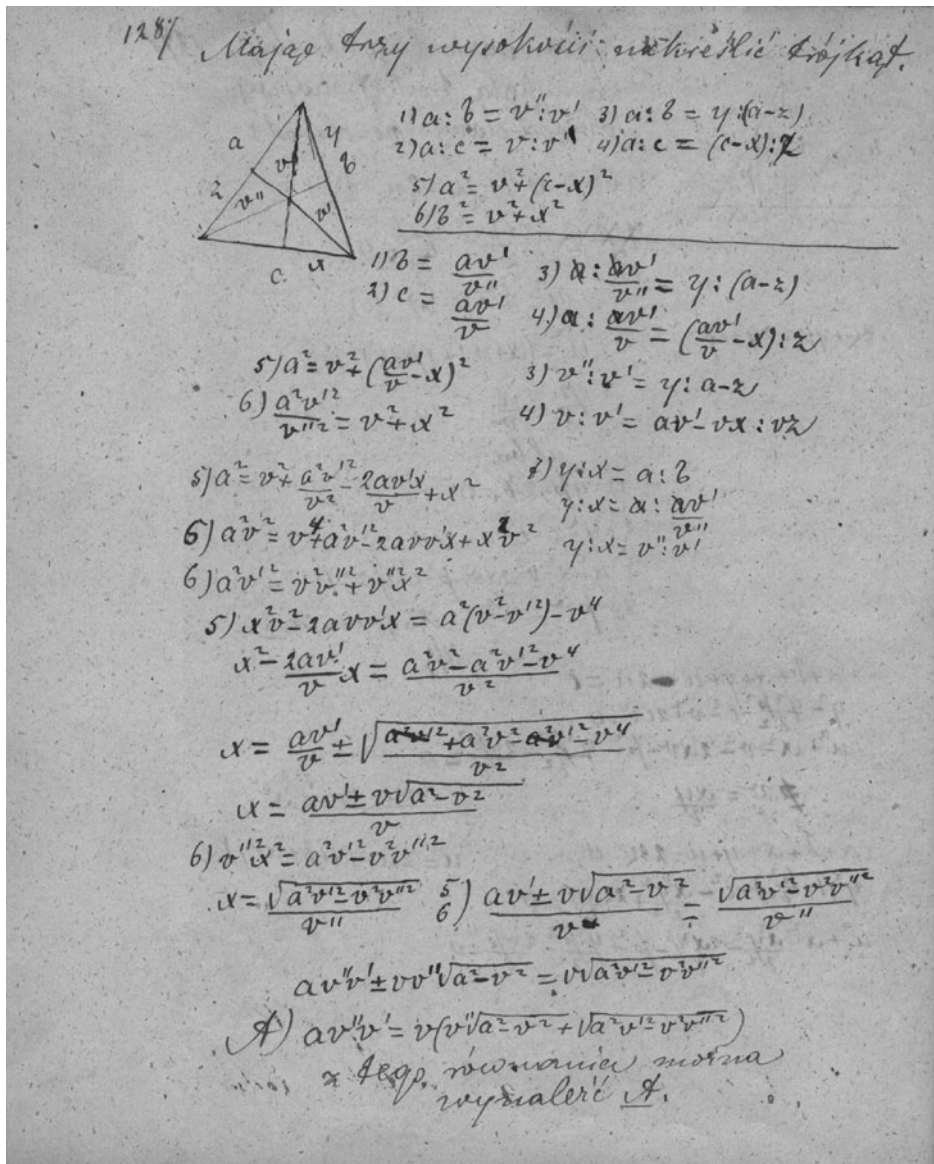 128/ Mając trzy wysokości nakreślić trójkąt.
a y b v z v'' v' c x
1) a : b = v'' : v' 3) a : b = y : (a-z)
2) a : c = v : v' 4) a : c = (c-x) : z
5) a² = v² + (c-x)²
6) b² = v² + x²
1) b = av'/v'' 3) a : av'/v'' = y : (a-z)
2) c = av'/v 4.) a : av'/v = (av'/v - x) : z
5) a² = v² + (av'/v - x)² 3) v'' : v' = y : a-z
6) a²v'²/v''² = v² + x² 4) v : v' = av' - vx : vz
5) a² = v² + a²v'²/v² - 2av'x/v + x² 7) y : x = a : b
y : x = a : av'/v''
5) a²v² = v⁴ + a²v'² - 2avv'x + x²v² y : x = v'' : v'
6) a²v'² = v²v''² + v''²x²
5) x²v² - 2avv'x = a²(v² - v'²) - v⁴
x² - 2av'/v x = a²v² - a²v'² - v⁴/v²
x = av'/v ± √a²v'² + a²v² - a²v'² - v⁴/v²
x = av' ± v√a² - v²/v
6) v''²x² = a²v'² - v²v''²
x = √a²v'² - v²v''²/v'' 5/6) av' ± v√a² - v²/v = √a²v'² - v²v''²/v''
av''v' ± vv''√a² - v² = v√a²v'² - v²v''²
A) av''v' = v(v''√a² - v² + √a²v'² - v²v''²)
z tego równania można
wynaleźć A.